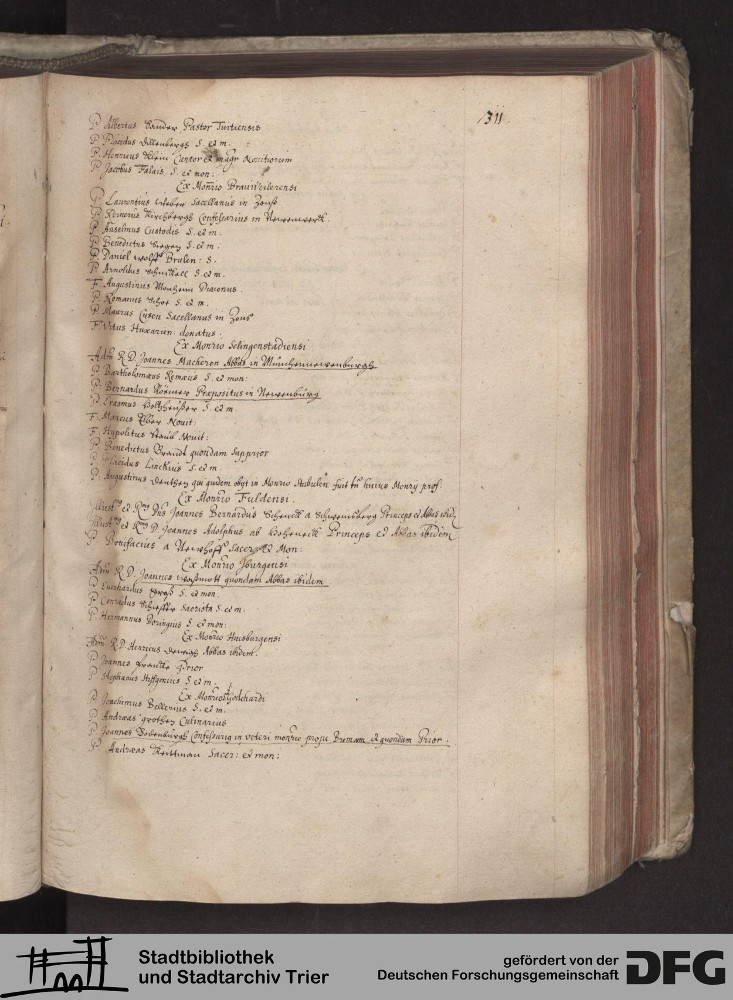 311
P. Albertus Sander Pastor Tuitiensis
P. Placidus Dillenbergs S. et m.
P. Henricus Klein Cantor et magr Novitiorum
P. Jacobus Falais S. et mon:
Ex Monrio Brauweilerensi
P. Laurentius Weber Sacellanus in Zonß
P. Reinerus Kirchbergs Confessarius in
P. Anselmus Custodis S. et m.
P. Benedictus S. et m.
P. Daniel Wolff Brulen: S.
P. Arnoldus S. et m.
F. Augustinus Monheim Diaconus.
P. Romanus S. et m.
P. Maurus Sacellanus in Zons
F. Vitus Huxarien: donatus.
Ex Monrio Selingenstadiensi
Adm R. D. Joannes Macheron Abbas in
P. Bartholomæus Remæus S. et mon:
P. Bernardus Præpositus in
P. Erasmus S. et m
F. Marcus Novit:
F. Hypolitus Novit:
P. Benedictus Brandt quondam Supprior
P. Placidus Linckius S. et m
P. Augustinus qui quidem obijt in Monrio Stabulen fuit tn huius Monrij prof.
Ex Monrio Fuldensi.
Illust et Rmg Dns Joannes Bernardus Schenck a Schweinsberg Princeps et Abbas ibid.
Illust et Rmg D. Joannes Adolphus ab Hoheneck Princeps et Abbas ibidem
P. Bonifacius a Sacer et Mon:
Ex Monrio Iburgensi
Adm R. D. Joannes quondam Abbas ibidem
P. Everhardus S. et mon.
P. Conradus Sacrista S. et m.
P. Hermannus Doringius S. et mon:
Ex Monrio Huisburgensi
Adm R. D. Henricus Abbas ibidem.
P. Joannes Prior
P. Stephanus S. et m.
Ex Monrio S. Godehardi
P. Joachimus Bellerius S. et m.
P. Andreas Culinarius
P. Joannes Confessarig in veteri monrio prope Bremam et quondam Prior.
P. Andreas Sacer: et mon:
Stadtbibliothek
und Stadtarchiv Trier
gefördert von der
Deutschen Forschungsgemeinschaft
DFG